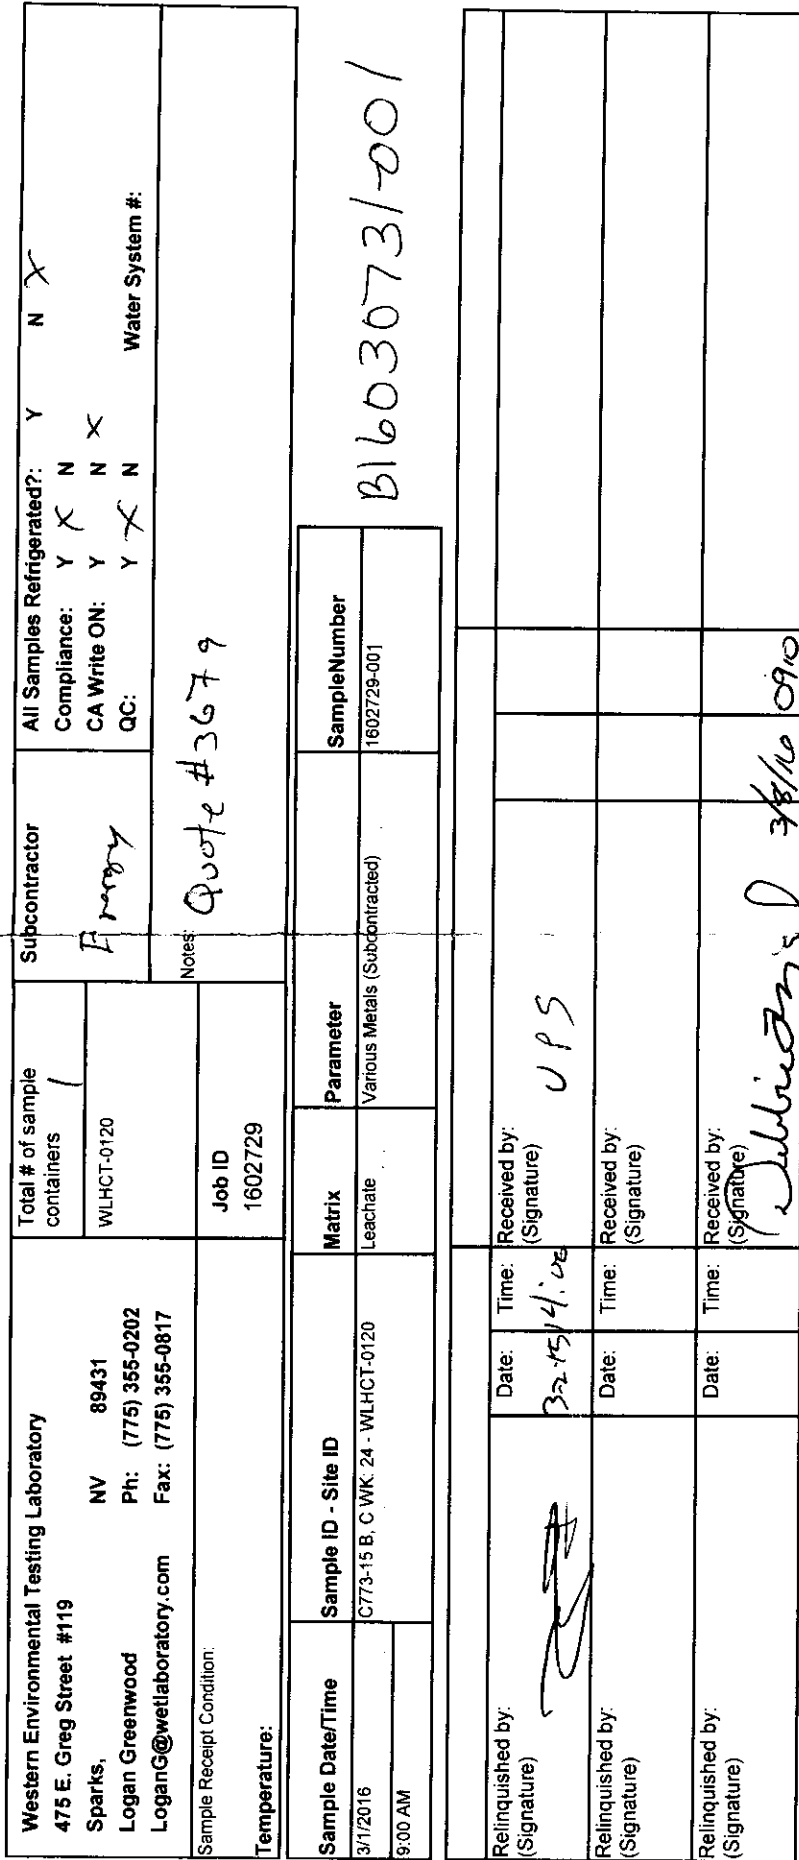 Western Environmental Testing Laboratory
475 E. Greg Street #119
Sparks, NV 89431
Logan Greenwood Ph: (775) 355-0202
LoganG@wetlaboratory.com Fax: (775) 355-0817
Total # of sample
containers 1
WLHCT-0120
Subcontractor
Energy
All Samples Refrigerated?: Y N X
Compliance: Y X N
CA Write ON: Y N X
QC: Y X N
Water System #:
Sample Receipt Condition:
Temperature:
Job ID
1602729
Notes: Quote #3679
Sample Date/Time Sample ID - Site ID Matrix Parameter SampleNumber
3/1/2016 C773-15 B, C WK: 24 - WLHCT-0120 Leachate Various Metals (Subcontracted) 1602729-001
9:00 AM
B16030731-001
Relinquished by: Date: Time: Received by:
(Signature) (Signature) UPS
Relinquished by: Date: Time: Received by:
(Signature) (Signature)
Relinquished by: Date: Time: Received by:
(Signature) (Signature)
3/8/16 0910